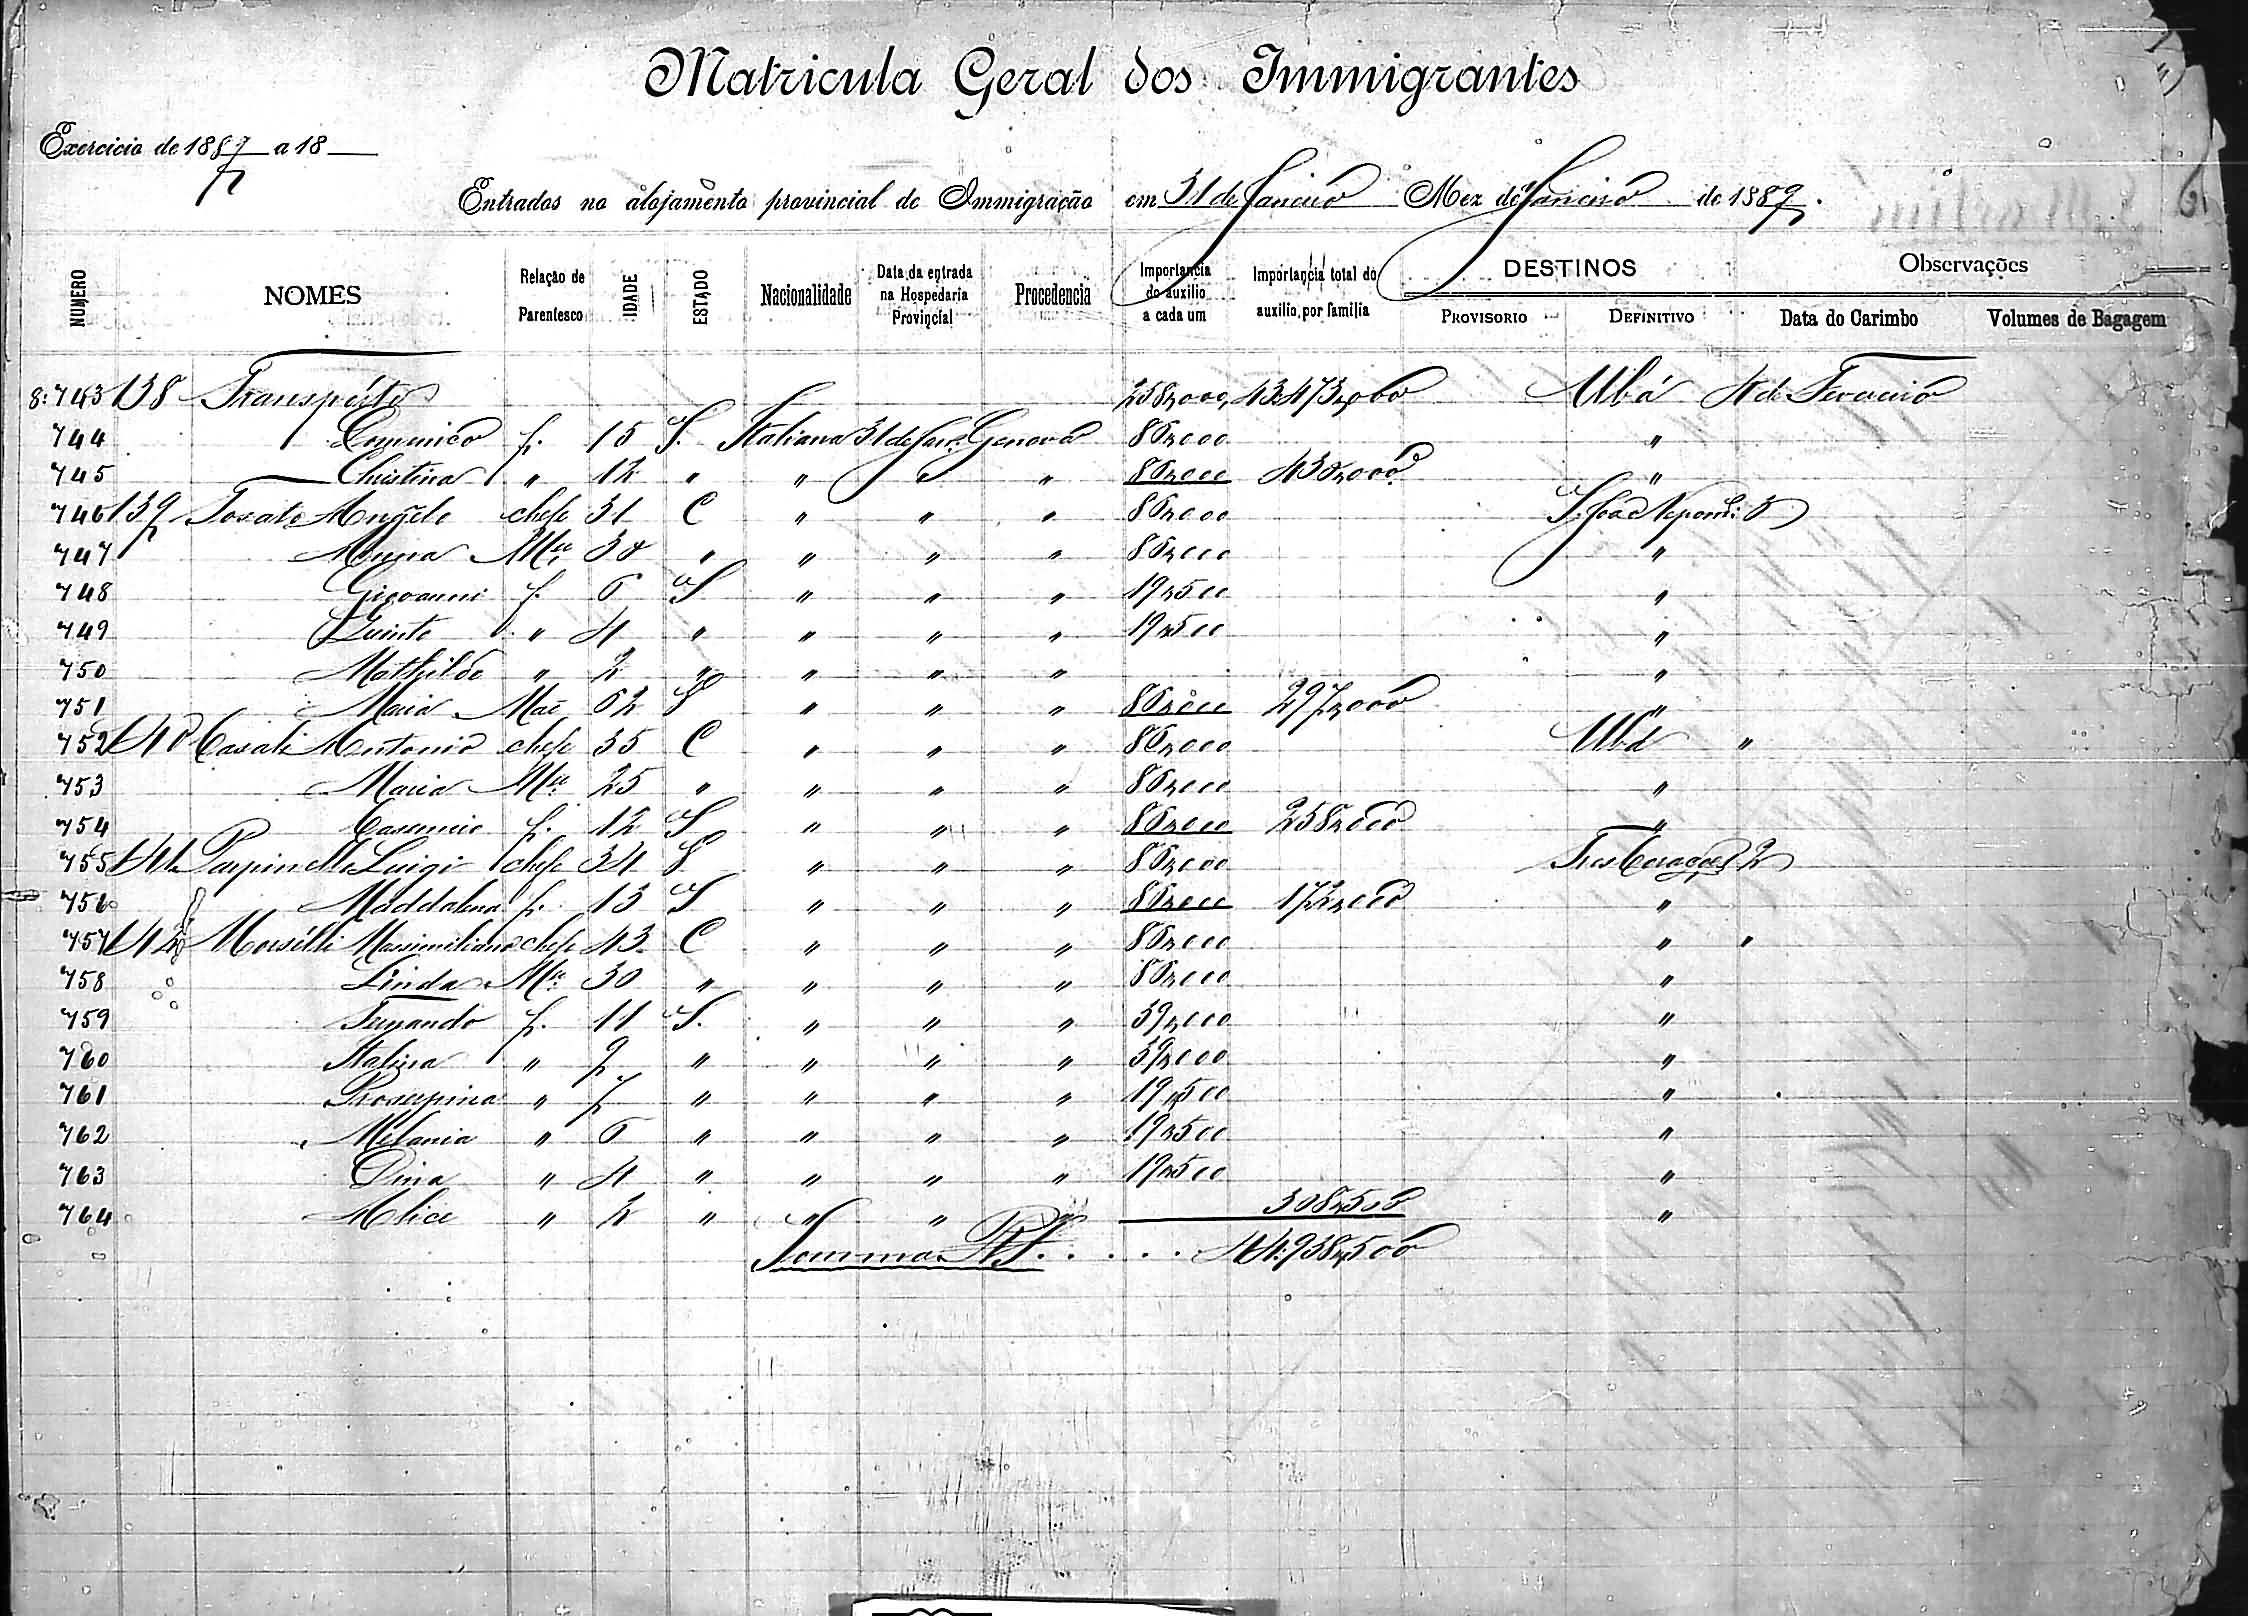 Matricula Geral dos Immigrantes
Exercicio de 1889 a 18
Entrados no alojamento provincial de Immigração em 31 de Janeiro Mez de Janeiro de 1889.
NUMERO NOMES Relação de Parentesco IDADE ESTADO Nacionalidade Data da entrada na Hospedaria Provincial Procedencia Importancia do auxilio a cada um Importancia total do auxilio, por familia DESTINOS PROVISORIO DEFINITIVO Observações Data do Carimbo Volumes de Bagagem
8:743 138 Transpórte 258,000 43:473,000 Ubá 4 de Fevereiro
744 Domenico f. 15 S. Italiana 31 de Jan.º Genova 86,000 "
745 Christina " 12 " " " 86,000 430,000 "
746 139 Tosato Angelo chefe 31 C " " " 86,000 S. João Nepom.
747 Anna Mer 30 " " " " 86,000 "
748 Giovanni f. 6 S " " " 19,500 "
749 " 4 " " " " 19,500 "
750 Mathilde " 2 " " " " "
751 Maria Mãe 62 " " " 86,000 297,000 "
752 140 Casali Antonio chefe 35 C " " " 86,000 Ubá "
753 Maria Mer 25 " " " " 86,000 "
754 f. 12 S " " " 86,000 258,000 "
755 141 Parpinelli Luigi chefe 34 " " " 86,000 Tres Corações 2
756 Maddalena f. 13 S " " " 86,000 172,000 "
757 142 Morselli Massimiliano chefe 43 C " " " 86,000 " "
758 Linda Mer 30 " " " " 86,000 "
759 Fernando f. 11 S. " " " 39,000 "
760 Italina " 9 " " " " 39,000 "
761 Proserpina " 7 " " " " 19,500 "
762 Melania " 6 " " " " 19,500 "
763 Dina " 4 " " " " 19,500 "
764 Alice " 2 " " " " 308,500 "
Somma RS. . . . . . 44:938,500